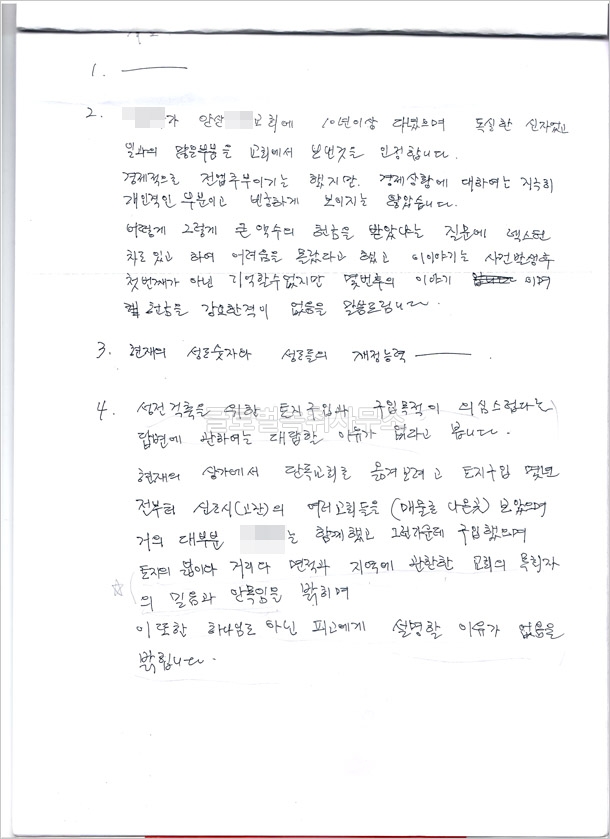 1.
2. 가 안산 교회에 10년이상 다녔으며 독실한 신자였고
일과의 많은부분을 교회에서 보낸것을 인정합니다.
경제적으로 전업주부이기는 했지만. 경제상황에 대하여는 지극히
개인적인 부분이고 빈한하게 보이지는 않았습니다.
어떻게 그렇게 큰 액수의 헌금을 받았냐는 질문에 넥스턴
차도있고 하여 어려움을 몰랐다라고 했고 이이야기는 사건발생후
첫번째가 아닌 기억할수없지만 몇번후의 이야기 이며
헌금을 강요한적이 없음을 말씀드립니다.
3. 현재의 성도숫자와 성도들의 재정능력
4. 성전건축을 위한 토지구입과 구입목적이 의심스럽다는
글로벌녹취사무소
답변에 관하여는 대답할 이유가 없다라고 봅니다.
현재의 상가에서 단독교회로 옮겨보려고 토지구입 몇년
전부터 신도시(고잔)의 여러교회들을 (매물로 나온곳) 보았으며
거의 대부분 는 함께했고 그러가운데 구입했으며
토지의 넓이와 거리와 면적과 지역에 관한한 교회의 목회자
의 믿음과 안목임을 밝히며
이또한 하나님도 아닌 피고에게 설명할 이유가 없음을
밝힙니다.